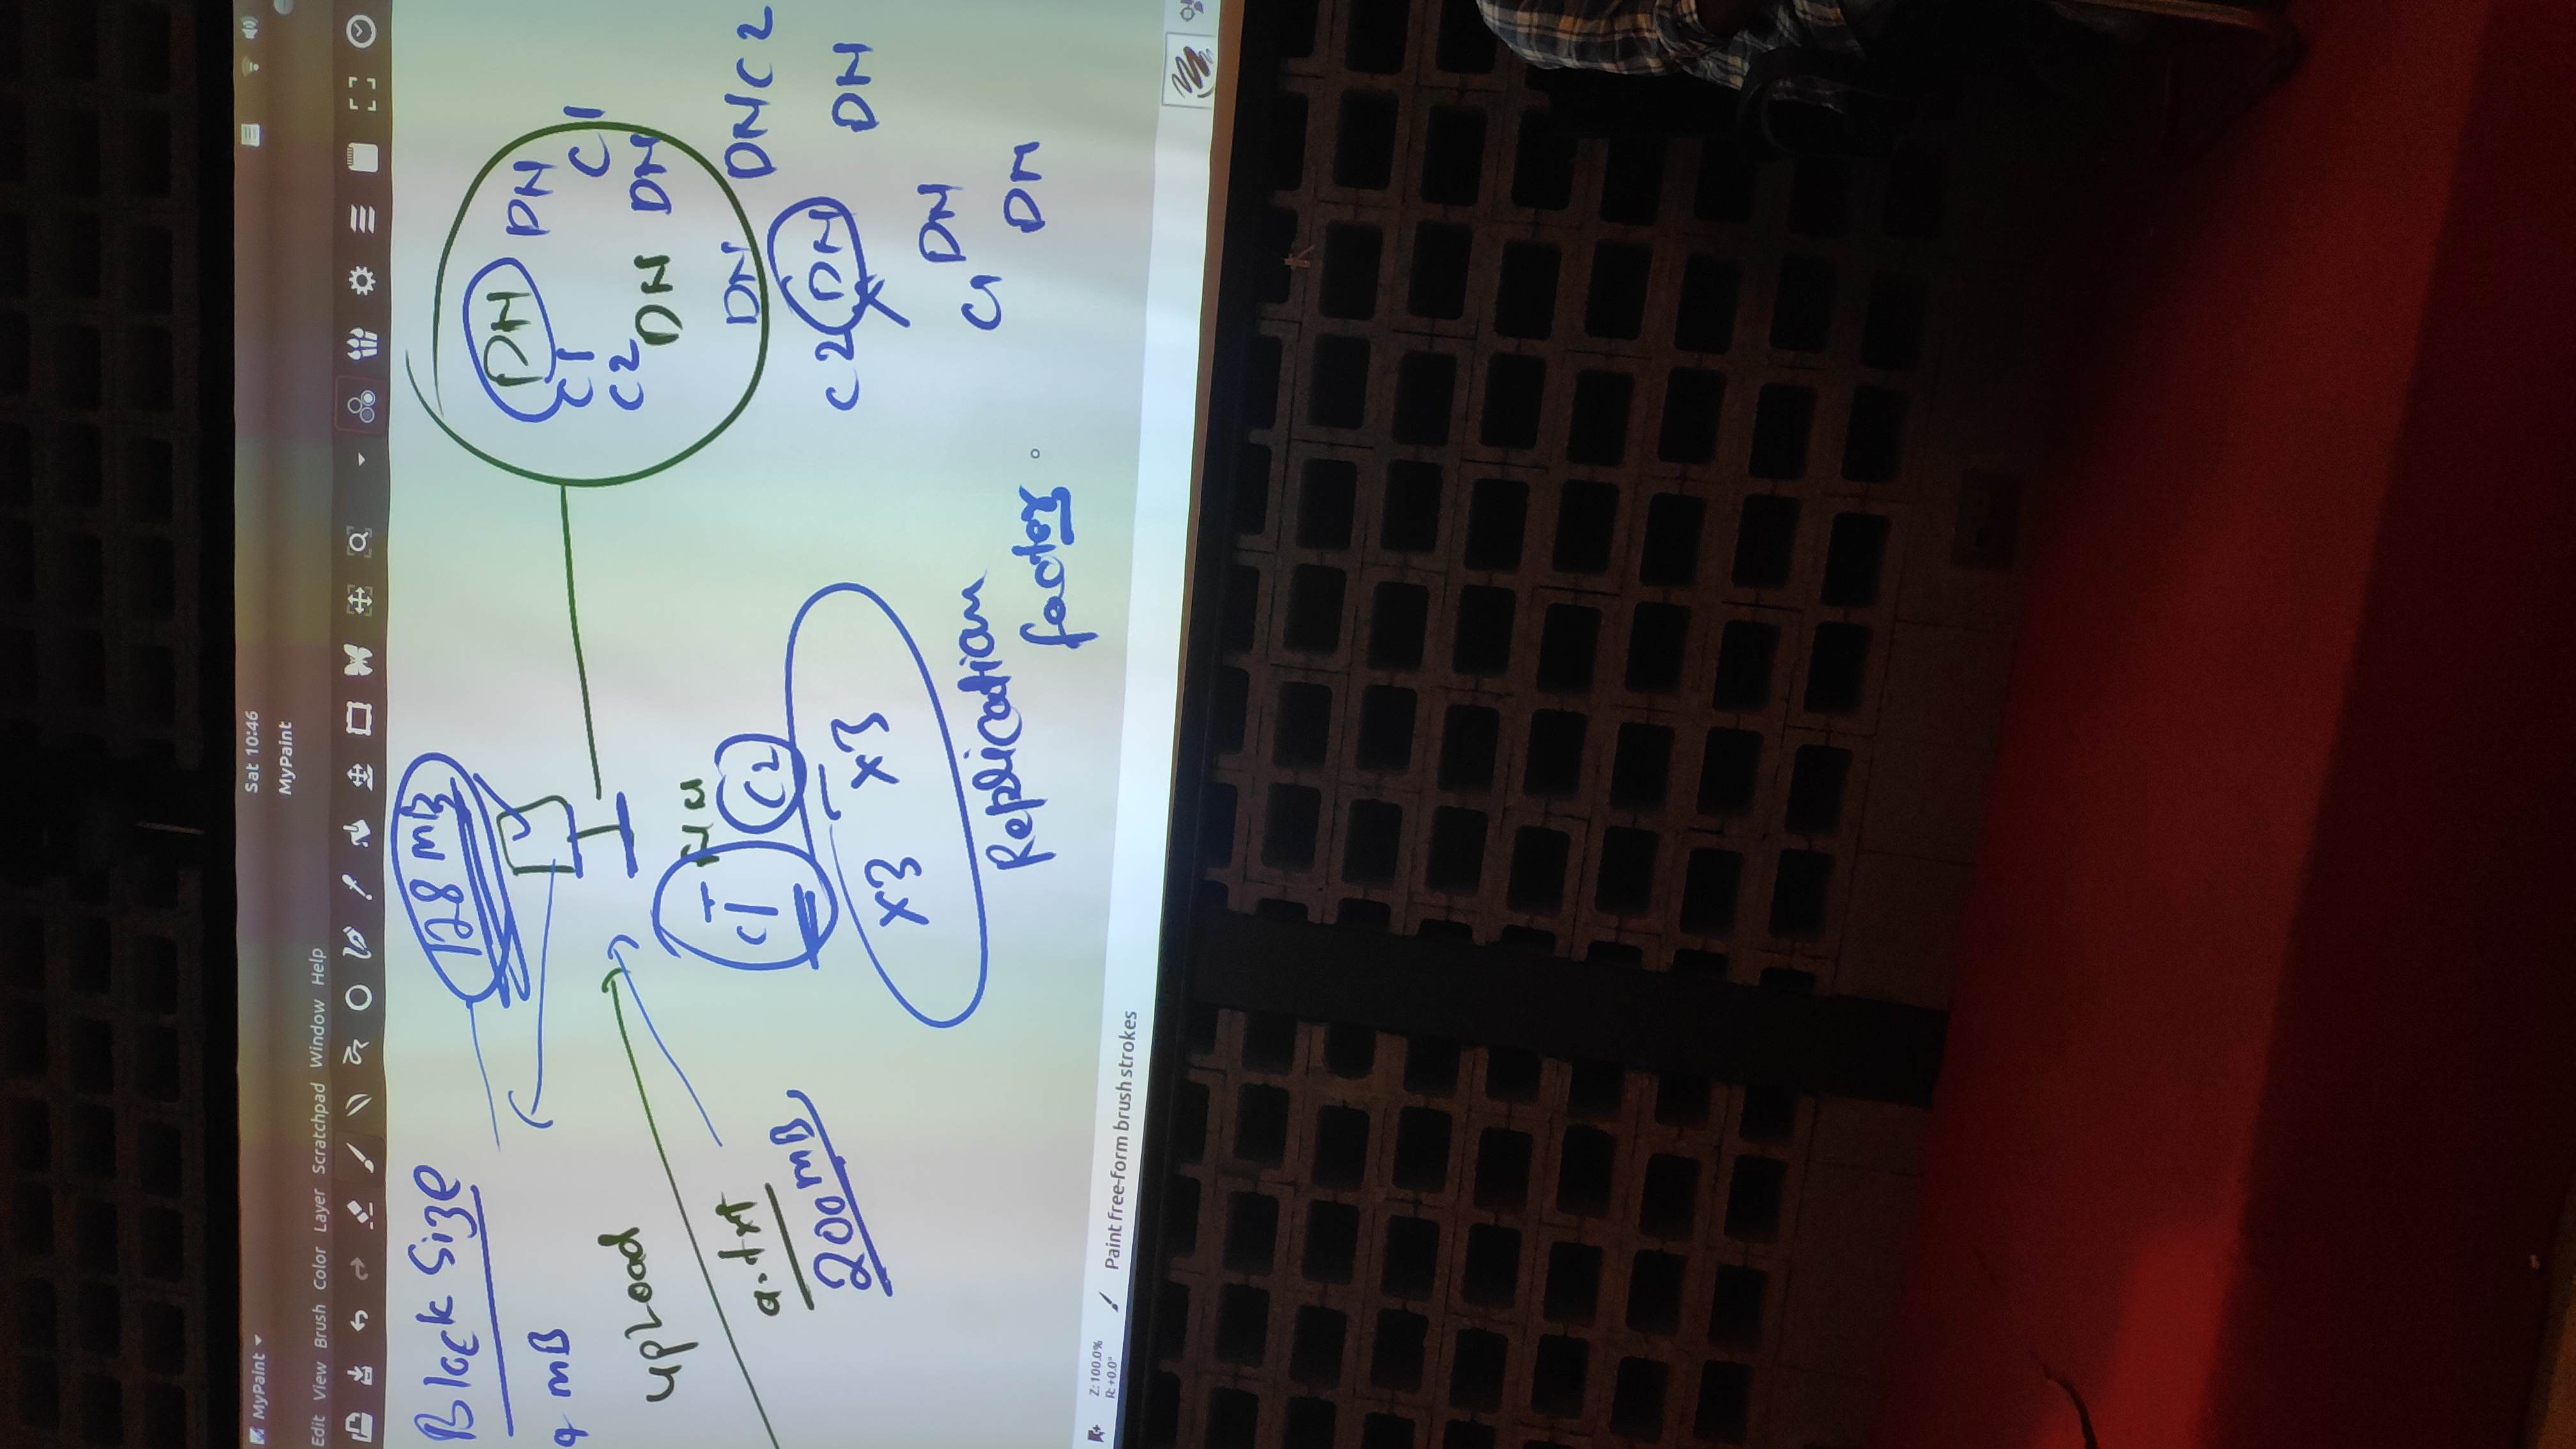 MyPaint
Sat 10:46
MyPaint
Edit View Brush Color Layer Scratchpad Window Help
Block Size
128 mB
mB
upload
a.txt
200mB
NN
C1
C2
x3 x3
Replication
factor
DN DN
C1 C1
C2
DN DN
DN DN C2
C2 DN DN
DN
C1
DN
Z: 100.0%
R: +0.0°
Paint free-form brush strokes